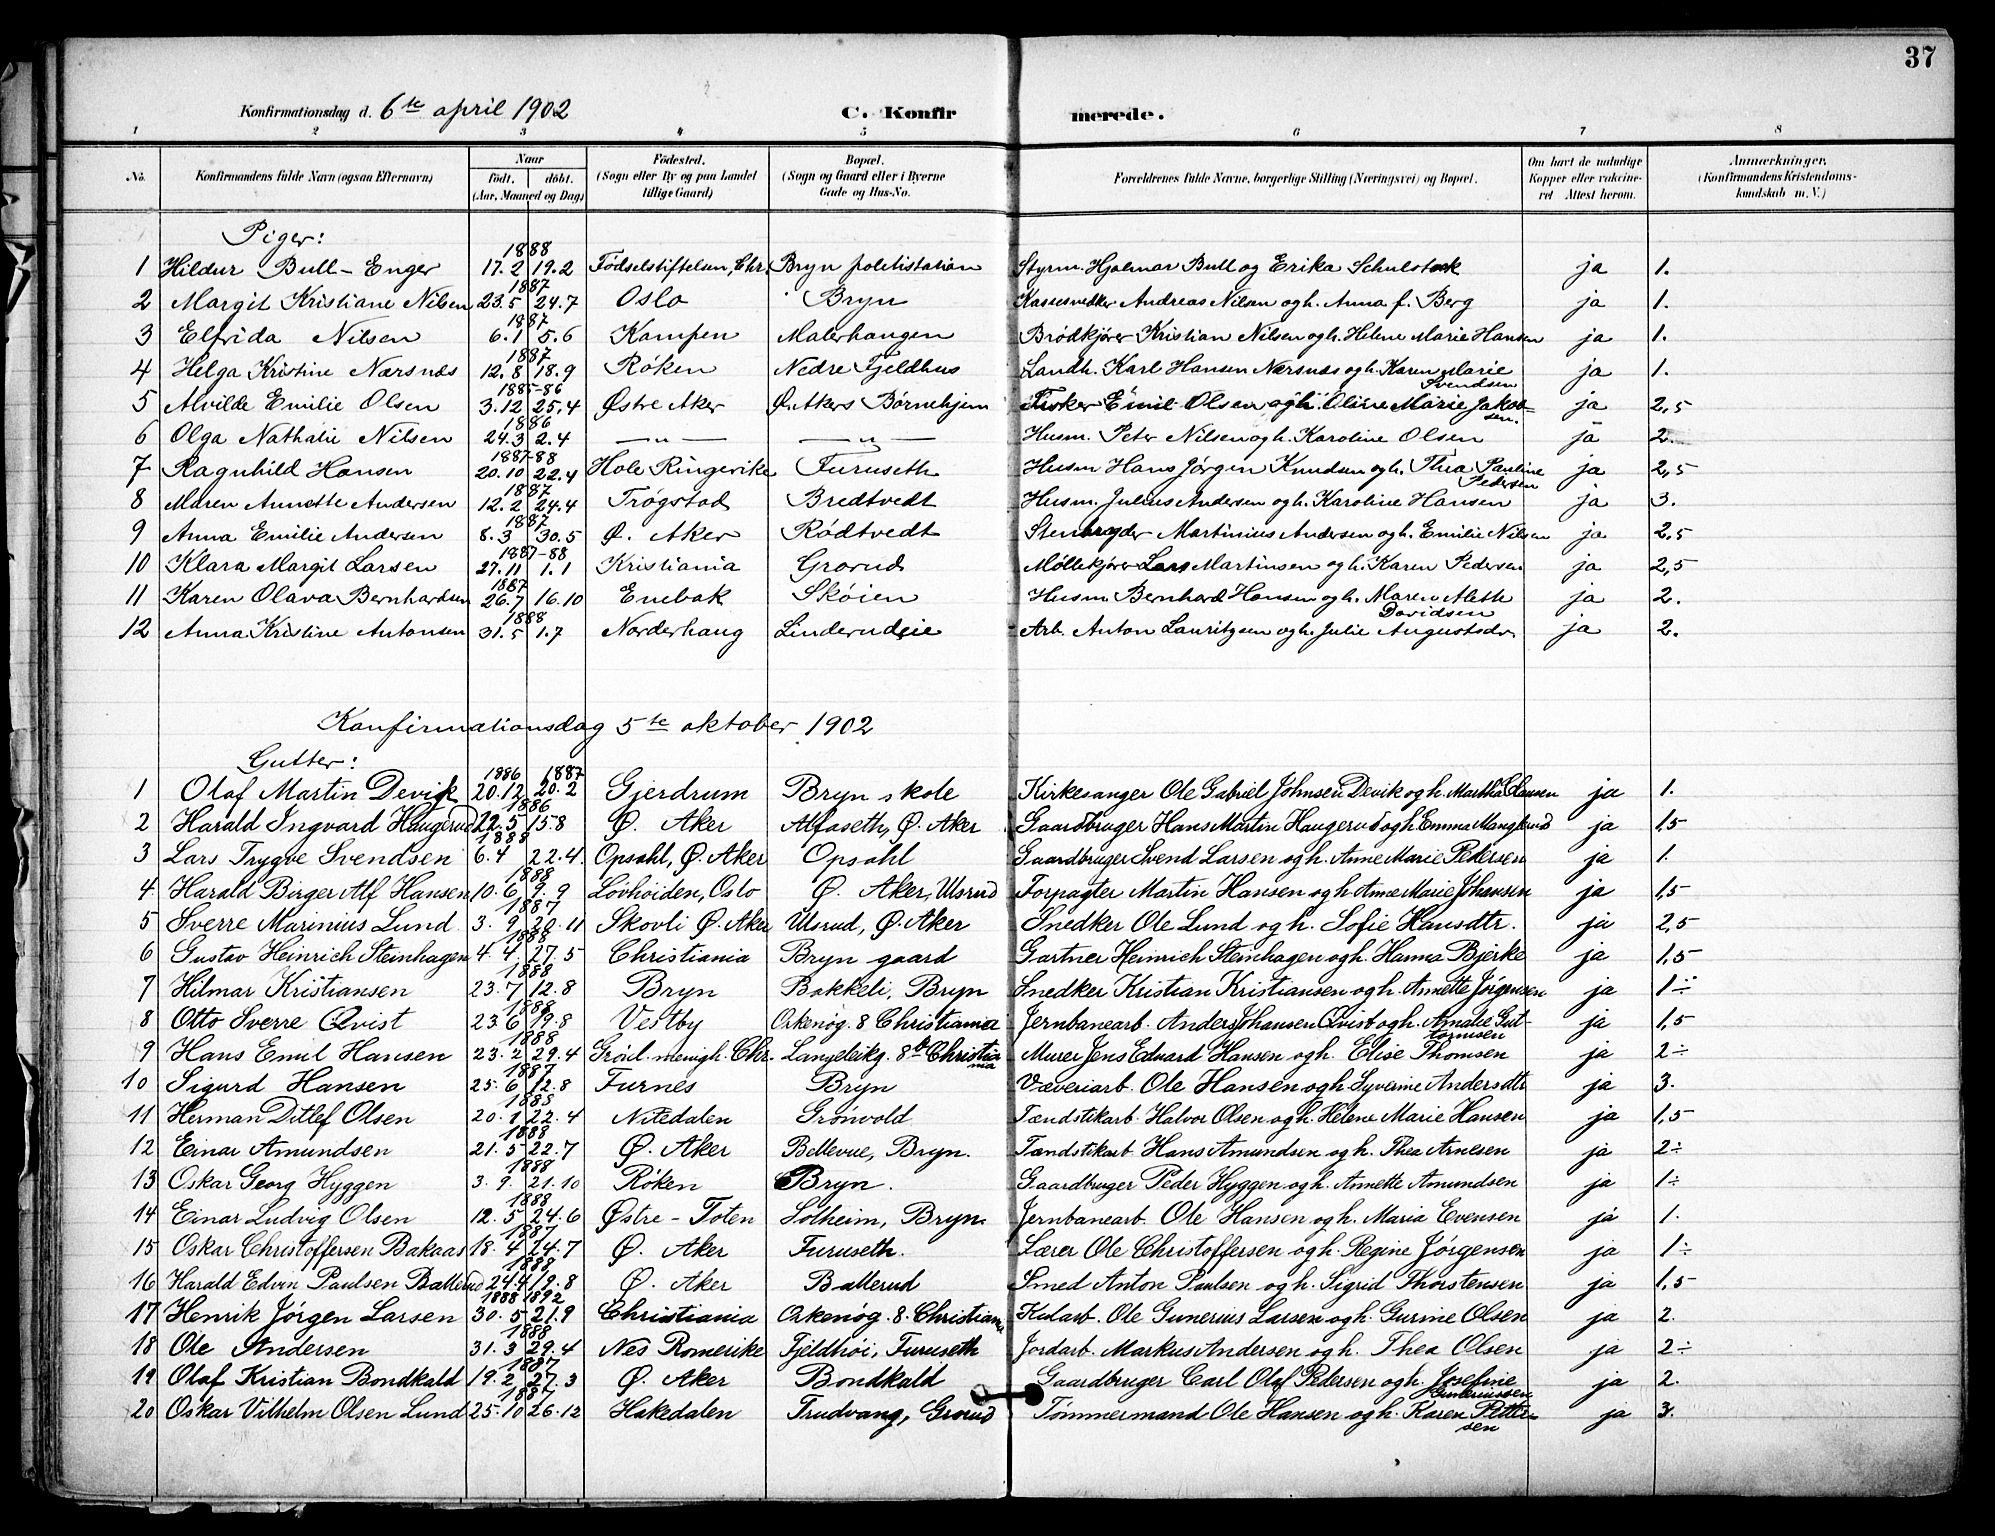 37
Konfirmationsdag d. 6te april 1902 C. Konfirmerede.
1 2 3 4 5 6 7 8
No. Konfirmandens fulde Navn (ogsaa Efternavn) Naar födt. döbt. (Aar, Maaned og Dag) Födested. (Sogn eller By og paa Landet tillige Gaard) Bopæl. (Sogn og Gaard eller i Byerne Gade og Hus-No. Forældrenes fulde Navne, borgerlige Stilling (Næringsvei) og Bopæl. Om havt de naturlige Kopper eller vakcineret Attest herom. Anmærkninger. (Konfirmandens Kristendomskundskab m. V.)
Piger:
1 Hildur Bull-Enger 1888 17.2 19.2 Födselstiftelsen, Chr. Bryn politistation Styrm. Hjalmar Bull og Erika Schulstok ja 1.
2 Margit Kristiane Nilsen 1887 23.5 24.7 Oslo Bryn Andreas Nilsen og h. Anna f. Berg ja 1.
3 Elfrida Nilsen 1887 6.1 5.6 Kampen Malerhaugen Brödkjörer Kristian Nilsen og h. Helene Marie Hansen ja 1.
4 Helga Kristine Nærsnæs 1887 12.8 18.9 Röken Nedre Fjeldhus Landh. Karl Hansen Nærsnæs og h. Karen Marie Svendsen ja 1.
5 Alvilde Emilie Olsen 1885-86 3.12 25.4 Østre Aker Ø. Akers Börnehjem Fisker Emil Olsen og h. Oline Marie Jakobsen. ja 2,5
6 Olga Nathalie Nilsen 1886 24.3 2.4 —„— —„— Husm. Peter Nilsen og h. Karoline Olsen ja 2.
7 Ragnhild Hansen 1887-88 20.10 22.4 Hole Ringerike Furuseth Husm Hans Jörgen Knudsen og h. Thea Pauline Pedersen ja 2,5
8 Maren Annette Andersen 1887 12.2 24.4 Trögstad Bredtvedt Husm. Julius Andersen og h. Karoline Hansen ja 3.
9 Anna Emilie Andersen 1887 8.3 30.5 Ø. Aker Rödtvedt Stenbryder Martinius Andersen og h. Emilie Nilsen ja 2,5
10 Klara Margit Larsen 1887-88 27.11 1.1 Kristiania Grorud Möllekjörer Lars Martinsen og h. Karen Pedersen ja 2,5
11 Karen Olava Bernhardsen 1887 26.7 16.10 Enebak Sköien Husm. Bernhard Hansen og h. Maren Aleth Davidsen ja 2.
12 Anna Kristine Antonsen 1888 31.5 1.7 Norderhaug Linderudeie Arb. Anton Lauritzen og h. Julie Augustsdr ja 2.
Konfirmationsdag 5te oktober 1902
Gutter:
1 Olaf Martin Devik 1886 1887 20.12 20.2 Gjerdrum Bryn skole Kirkesanger Ole Gabriel Johnsen Devik og h. Martha Clausen ja 1.
2 Harald Ingvard Haugerud 1886 22.5 15.8 Ø. Aker Alfaseth, Ø. Aker Gaardbruger Hans Martin Haugerud og h Emma Manglerud ja 1,5
3 Lars Trygve Svendsen 1888 6.4 22.4. Opsahl, Ø. Aker Opsahl Gaardbruger Svend Larsen og h. Anne Marie Pedersen ja 1.
4 Harald Birger Alf Hansen 1888 10.6 9.9 Lövhöiden, Oslo Ø. Aker, Ulsrud Forpagter Martin Hansen og h Anne Marie Johansen ja 1,5
5 Sverre Marinius Lund 1887 3.9 20.11 Skovli Ø. Aker Ulsrud, Ø. Aker Snedker Ole Lund og h. Sofie Hansdtr. ja 2,5
6 Gustav Heinrich Steinhagen 1888 4.4 27.5 Christiania Bryn gaard Gartner Heinrich Steinhagen og h. Hanna Bjerke ja 1,5
7 Hilmar Kristiansen 1888 23.7 12.8 Bryn Bakkeli, Bryn Snedker Kristian Kristiansen og h. Annette Jörgensen ja 1÷
8 Otto Sverre Qvist 1888 23.6 19.8 Vestby Orkenög. 8 Christiania Jernbanearb. Anders Johansen Qvist og h. Amalie Guttormsen ja 1,5
9 Hans Emil Hansen 1888 23.2 29.4 Grönl. menigh. Chr. Langeleikg. 8b Christiania Murer Jens Edvard Hansen og h. Elise Thomsen ja 2÷
10 Sigurd Hansen 1887 25.6 12.8 Furnes Bryn Væveriarb. Ole Hansen og h Syverine Andersdtr ja 3.
11 Herman Ditlef Olsen 1888 20.1 22.4 Nitedalen Grönvold Tændstikarb. Halvor Olsen og h. Helene Marie Hansen ja 1,5
12 Einar Amundsen 1888 21.5 22.7 Ø. Aker Bellevue, Bryn. Tændstikarb. Hans Amundsen og h. Thea Arnesen ja 2÷
13 Oskar Georg Hyggen 1888 3.9. 21.10 Röken Bryn. Gaardbruger Peder Hyggen og h. Annette Amundsen ja 1÷
14 Einar Ludvig Olsen 1888 12.5 24.6 Østre-Toten Solheim, Bryn. Jernbanearb. Ole Hansen og h. Maria Evensen ja 1.
15 Oskar Christoffersen Bakaas 1887 18.4 24.7 Ø. Aker Furuseth. Lærer Ole Christoffersen og h. Regine Jörgensen ja 1÷
16 Harald Edvin Paulsen Ballerud 1888 24.4 19.8 Ø. Aker Ballerud Smed Anton Paulsen og h. Sigrid Thorstensen ja 1,5
17 Henrik Jörgen Larsen 1888 1892 30.5 21.9 Christiania Orkenög. 8. Christiania Kularb. Ole Gunerius Larsen og h. Gurine Olsen ja 2.
18 Ole Andersen 1888 31.3 29.4 Nes Romerike Fjeldhöi, Furuseth Jordarb. Markus Andersen og h. Thea Olsen ja 2÷
19 Olaf Kristian Bondkald 1887 19.2 27.3 Ø. Aker Bondkald Gaardbruger Carl Olaf Pedersen og h. Josefine Gunerussen ja 2.
20 Oskar Vilhelm Olsen Lund 1887 25.10 26.12 Hakedalen Trudvang, Grorud Tömmermand Ole Hansen og h. Karen Pettersen ja 3.